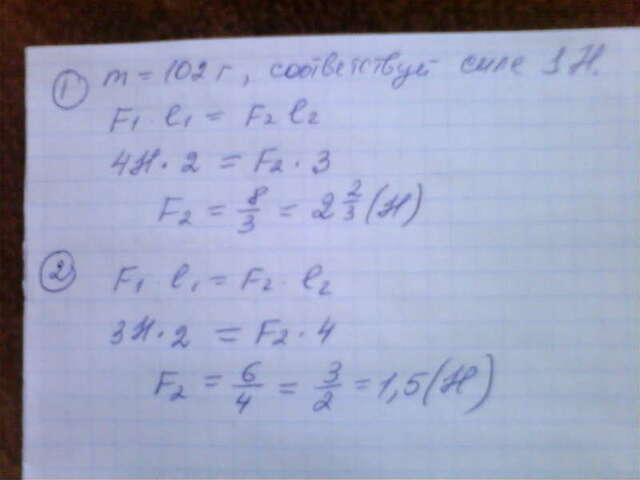 ① m = 102 г, соответствует силе 1 Н.
F₁ · l₁ = F₂ l₂
4Н · 2 = F₂ · 3
F₂ = 8/3 = 2 2/3 (Н)
② F₁ · l₁ = F₂ · l₂
3Н · 2 = F₂ · 4
F₂ = 6/4 = 3/2 = 1,5 (Н)